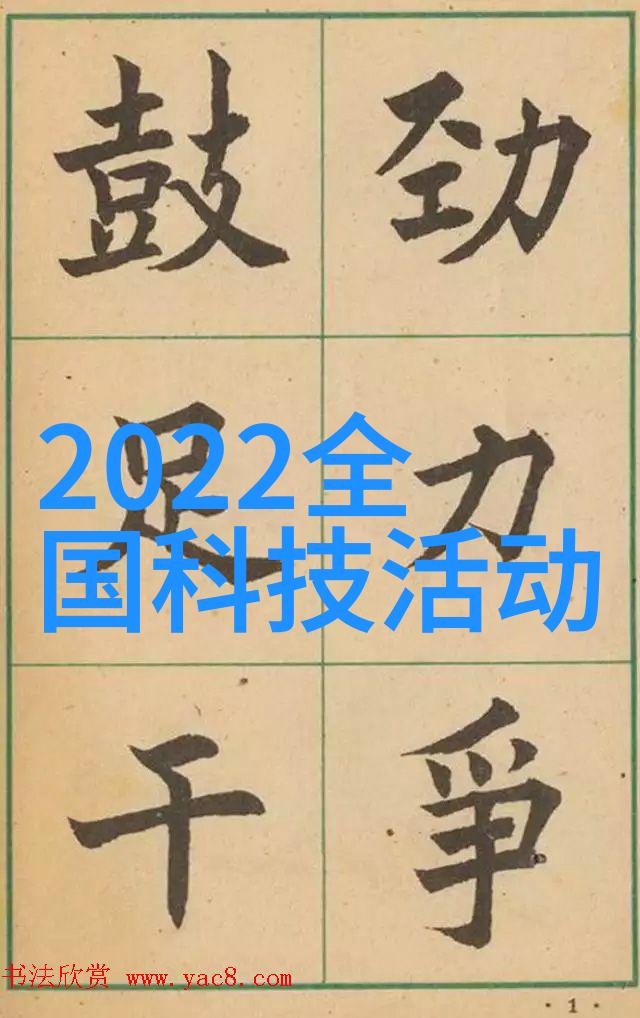 鼓足干
劲力爭
2022全
国科技活动
书法欣赏 www.yac8.com
· 1 ·